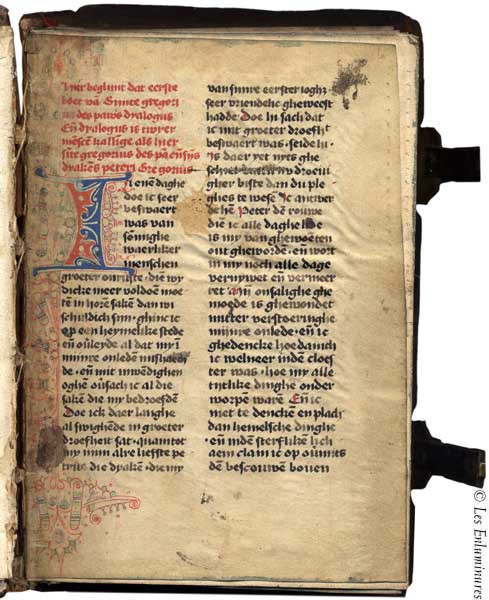 Hier beghint dat eerste
boec vā Sinte gregori
us des paws dyalogus
Eñ dyalogus is twyer
mēscē kallīge als hier
sīte gregorius des
dyakēs peters Gregorius
In enē daghe
doe ic seer
beswaert
was van
sōmighe
waerliker
menschen
groeter onruste · diē wy
dicke meer voldoē moe
tē in horē sakē dan wi
schuldich sijn · ghinc ic
op een heymelike stede
eñ ouleyde al dat my ī
minre onledē mishaech
de · eñ mit inwēdighen
oghē oūsach ic al die
sakē die my bedroefdē
Doe ick daer langhe
al swighēde in groter
droefheit sat · quam tot
my mijn alre liefste pe
trus die dyakē · die my
van sijnre eerster ioghz
seer vriendelic gheweest
hadde Doe hi sach dat
ic mit groeter droefh
beswaert was · seide hi ·
Is daer yet nyes ghe
schiet droeui
gher biste dan du ple
ghes te wesē Ic antwer
de hē Peter dē rouwe
diē ic alle daghe lide
is my van ghewoēten
out ghewordē · eñ wort
in my noch alle dage
vernywet eñ vermeer
ret onsalighe ghe
moede is ghewondet
mitter verstoeringhe
mijnre onlede · eñ ic
ghedencke hoedanich
ic welneer indē cloes
ter was · hoe my alle
tijtlike dinghe onder
worpē warē Eñ ic
niet te denckē en plach
dan hemelsche dinghe
· eñ indem sterflikē lich
aem clam ic op oūmits
dē bescouwen bouen
© Les Enluminures